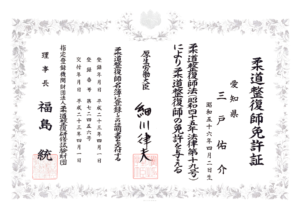 柔道整復師免許証
愛知県
三戸佑介
昭和五十六年四月二日生
柔道整復師法(昭和四十五年法律第十九号)
により柔道整復師の免許を与える
厚生労働大臣 細川律夫
柔道整復師名簿に登録し此証明書を交付する
登録年月日 平成二十三年四月一日
登録番号
交付年月日 平成二十三年四月一日
指定登録機関財団法人柔道整復研修試験財団
理事長 福島統